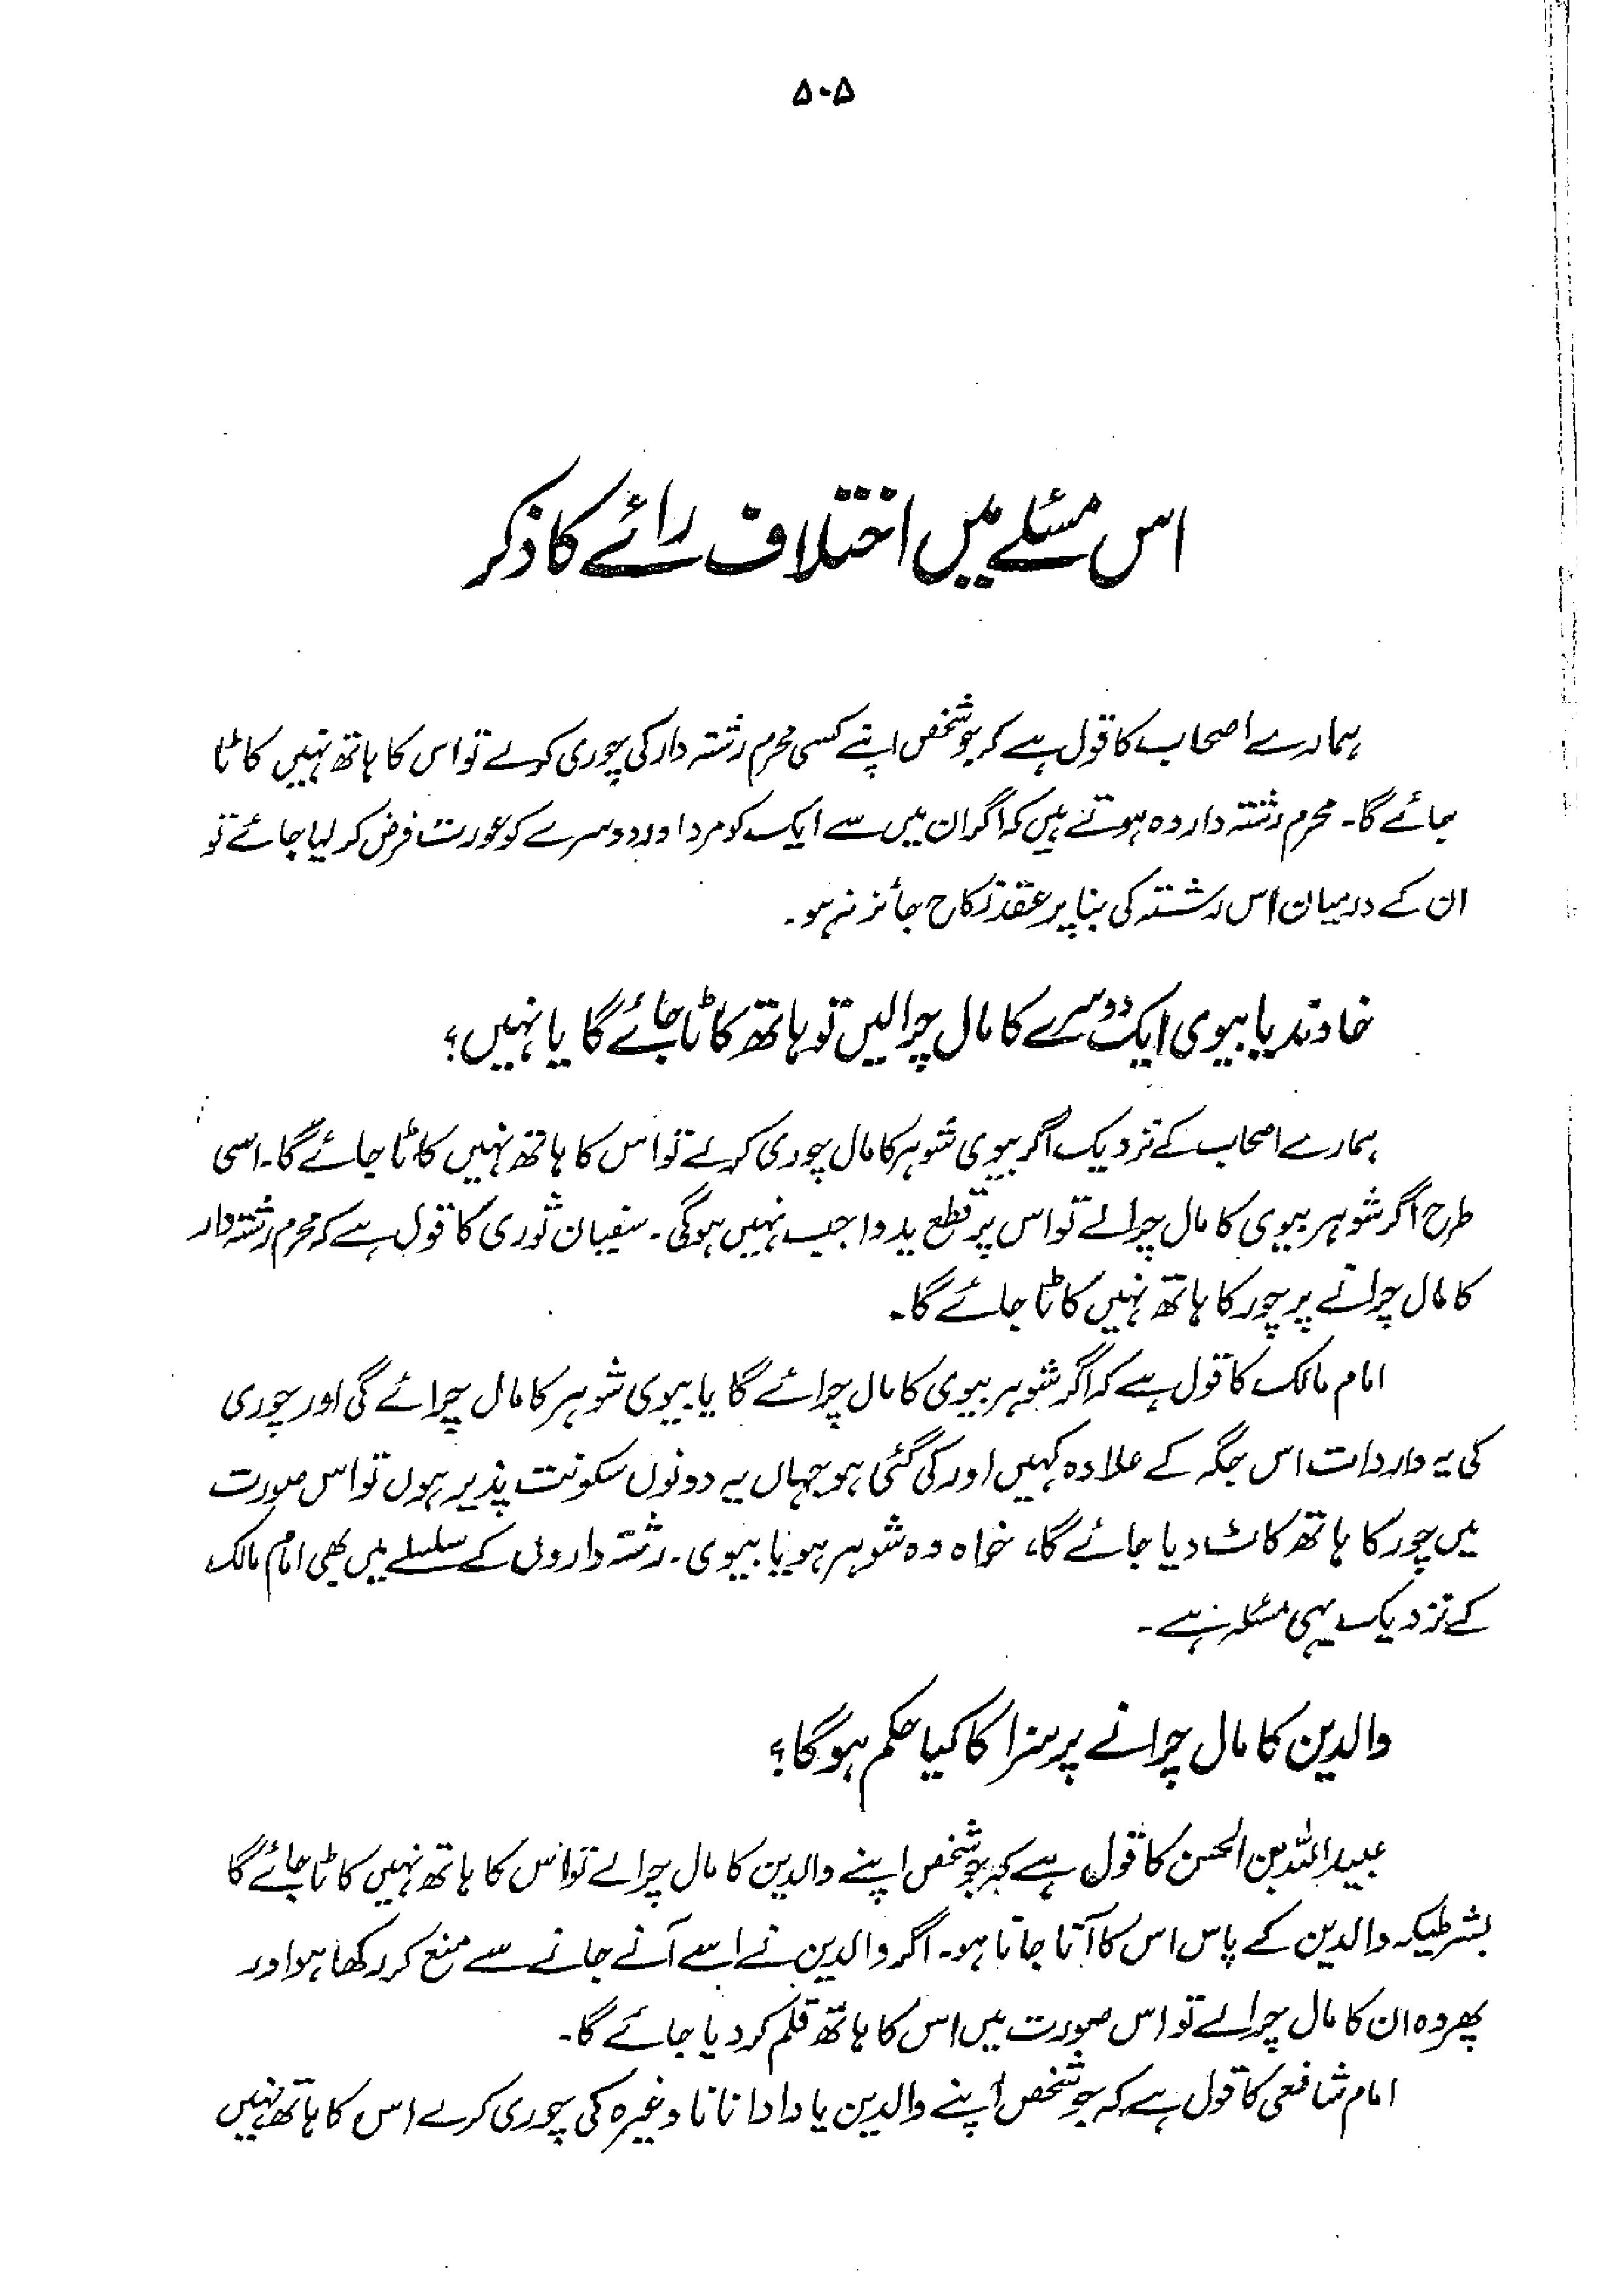 ۵۰۵
اس مسئلے میں اختلاف رائے کا ذکر
ہمارے اصحاب کا قول ہے کہ جو شخص اپنے کسی محرم رشتہ دار کی چوری کرلے تو اس کا ہاتھ نہیں کاٹا
جائے گا۔ محرم رشتہ دار وہ ہوتے ہیں کہ اگر ان میں سے ایک کو مرد اور دوسرے کو عورت فرض کر لیا جائے تو
ان کے درمیان اس رشتہ کی بنا پر عقد نکاح جائز نہ ہو۔
خاوند یا بیوی ایک دوسرے کا مال چرالیں تو ہاتھ کاٹا جائے گا یا نہیں؟
ہمارے اصحاب کے نزدیک اگر بیوی شوہر کا مال چوری کرلے تو اس کا ہاتھ نہیں کاٹا جائے گا۔ اسی
طرح اگر شوہر بیوی کا مال چرالے تو اس پر قطع ید واجب نہیں ہوگی۔ سفیان ثوری کا قول ہے کہ محرم رشتہ دار
کا مال چرانے پر چور کا ہاتھ نہیں کاٹا جائے گا۔
امام مالک کا قول ہے کہ اگر شوہر بیوی کا مال چرائے گا یا بیوی شوہر کا مال چرائے گی اور چوری
کی یہ واردات اس جگہ کے علاوہ کہیں اور کی گئی ہو جہاں یہ دونوں سکونت پذیر ہوں تو اس صورت
میں چور کا ہاتھ کاٹ دیا جائے گا، خواہ وہ شوہر ہو یا بیوی۔ رشتہ داروں کے سلسلے میں بھی امام مالک
کے نزدیک یہی مسئلہ ہے۔
والدین کا مال چرانے پر سزا کا کیا حکم ہوگا؟
عبیداللہ بن الحسن کا قول ہے کہ جو شخص اپنے والدین کا مال چرالے تو اس کا ہاتھ نہیں کاٹا جائے گا
بشرطیکہ والدین کے پاس اس کا آنا جانا ہو۔ اگر والدین نے اسے آنے جانے سے منع کر رکھا ہو اور
پھر وہ ان کا مال چرالے تو اس صورت میں اس کا ہاتھ قلم کر دیا جائے گا۔
امام شافعی کا قول ہے کہ جو شخص اپنے والدین یا دادا نانا وغیرہ کی چوری کرلے اس کا ہاتھ نہیں